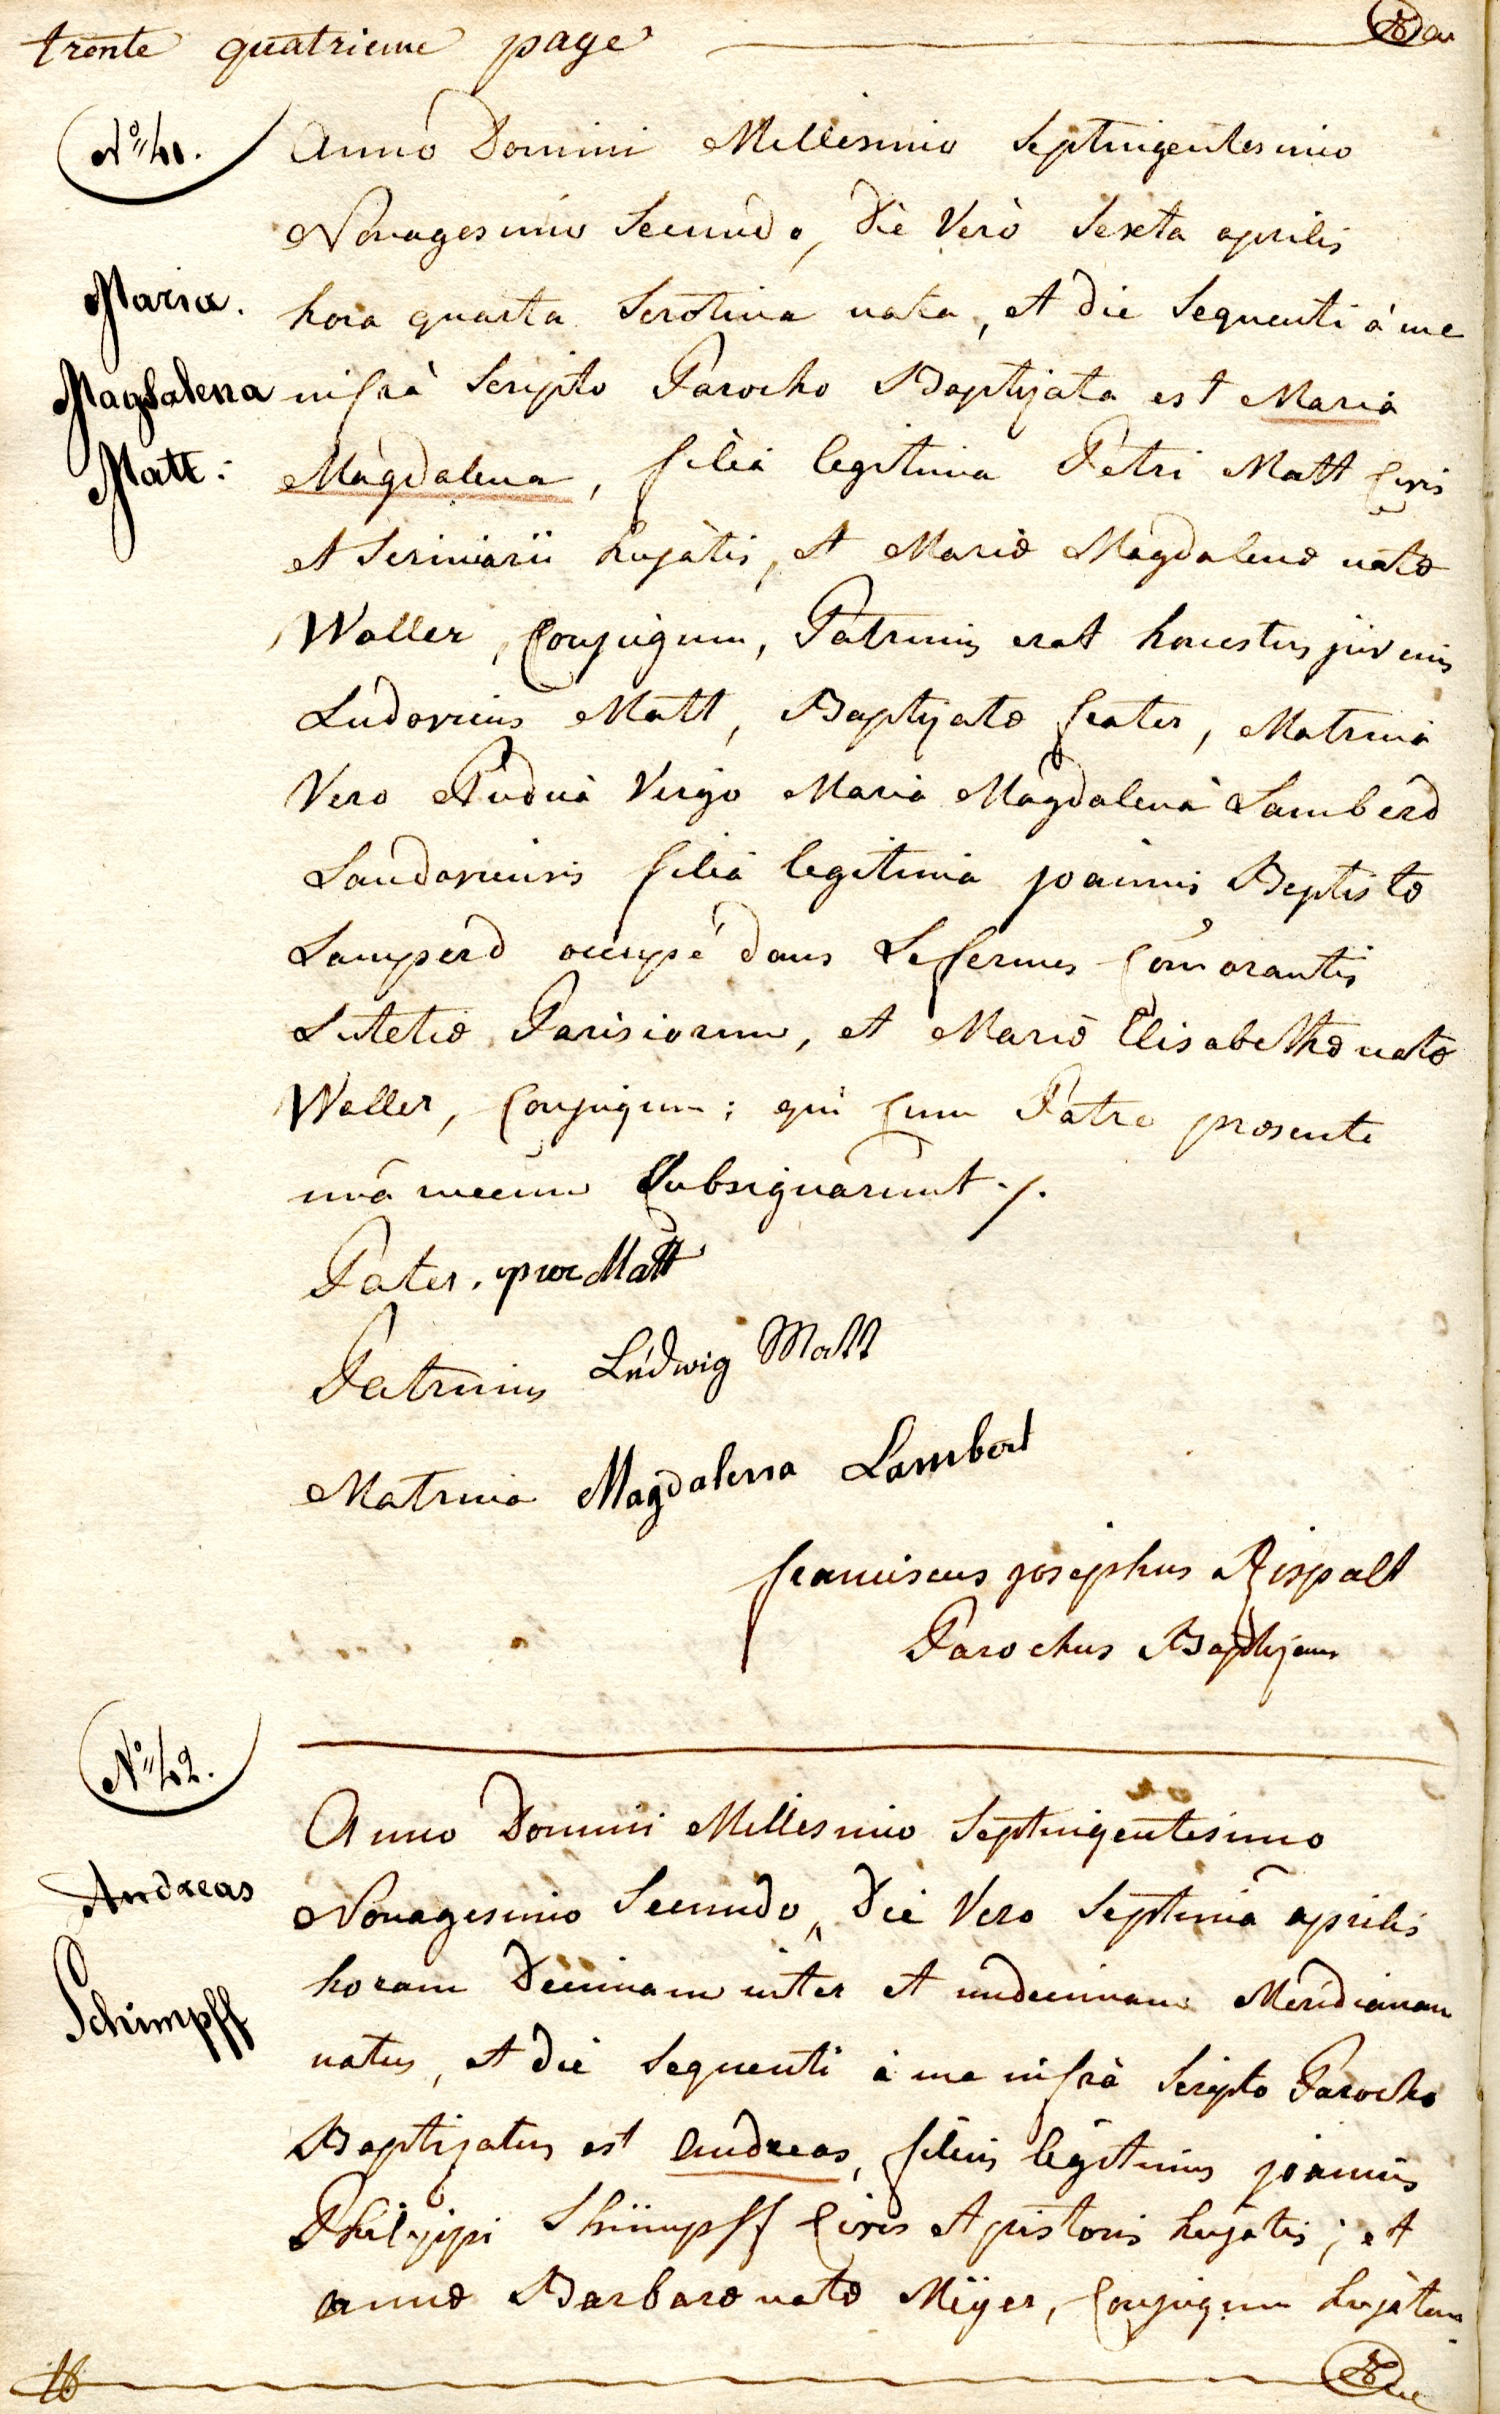 trente quatrieme page
No 41.
Anno Domini Millesimo Septingentesimo
Nonagesimo Secundo, Die Verò Sexta aprilis
Maria.
hora quarta Serotina nata, et die Sequenti à me
Magdalena
infrà Scripto Parocho Baptizata est Maria
Matt:
Magdalena, filia legitima Petri Matt Civis
et Scriniarii hujatis, et Mariæ Magdalenæ natæ
Waller, Conjugum, Patrinus erat honestus juvenis
Ludovicus Matt, Baptizatæ frater, Matrina
Vero Pudica Virgo Maria Magdalena Lamberd
Landaviensis filia legitima joannis Baptistæ
Lamperd occupé dans Le fermes Com̄orantis
Lutetiæ Parisiorum, et Mariæ Elisabethæ natæ
Waller, Conjugum; qui Cum Patre præsente
unà mecum Subsignarunt ./.
Pater. Matt
Patrinus Ludwig Matt
Matrina Magdalena Lambert
franciscus josephus Rispalt
Parochus Baptizans
No 42.
Anno Domini Millesimo Septingentesimo
Andreas
Nonagesimo Secundo, Die Vero Septima aprilis
horam Decimam inter et undecimam Meridianam
Schimpff
natus, et die Sequenti à me infrà Scripto Parocho
Baptizatus est Andreas, filius legitimus joannis
Philippi Shimpff Civis et pistoris hujatis; et
annæ Barbaræ natæ Meÿer, Conjugum hujatum